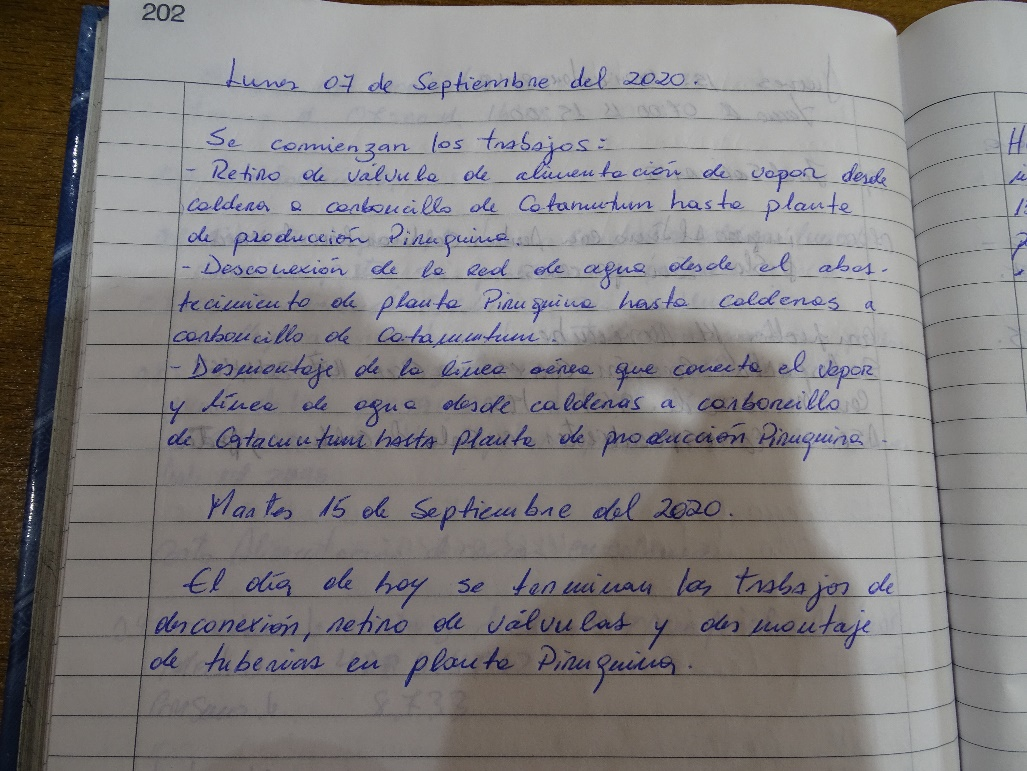 202
Lunes 07 de Septiembre del 2020.
Se comienzan los trabajos:
- Retiro de válvula de alimentación de vapor desde
caldera a carboncillo de Catamutun hasta planta
de producción Piruquina.
- Desconexión de la red de agua desde el abas-
tecimiento de planta Piruquina hasta calderas a
carboncillo de Catamutum
- Desmontaje de la línea aérea que conecta el vapor
y línea de agua desde calderas a carboncillo
de Catamutum hasta planta de producción Piruquina.
Martes 15 de Septiembre del 2020.
El día de hoy se terminan los trabajos de
desconexión, retiro de válvulas y desmontaje
de tuberias en planta Piruquina.